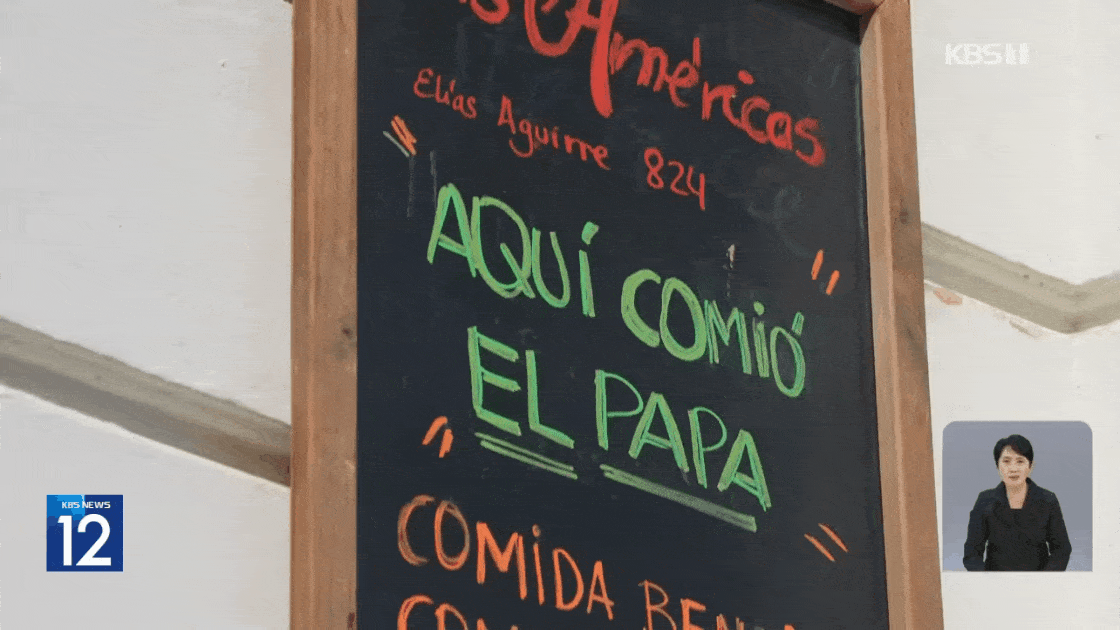 Américas
Elías Aguirre 824
"AQUÍ COMIÓ
EL PAPA"
COMIDA
KBS
KBS NEWS
12